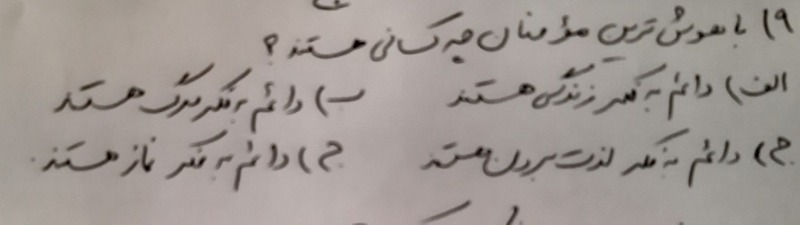 ۱۹) باهوش ترین مؤمنان چه کسانی هستند؟
الف) دائم به فکر زندگی هستند ب) دائم به فکر مرگ هستند
ج) دائم به فکر لذت بردن هستند ج) دائم به فکر نماز هستند.